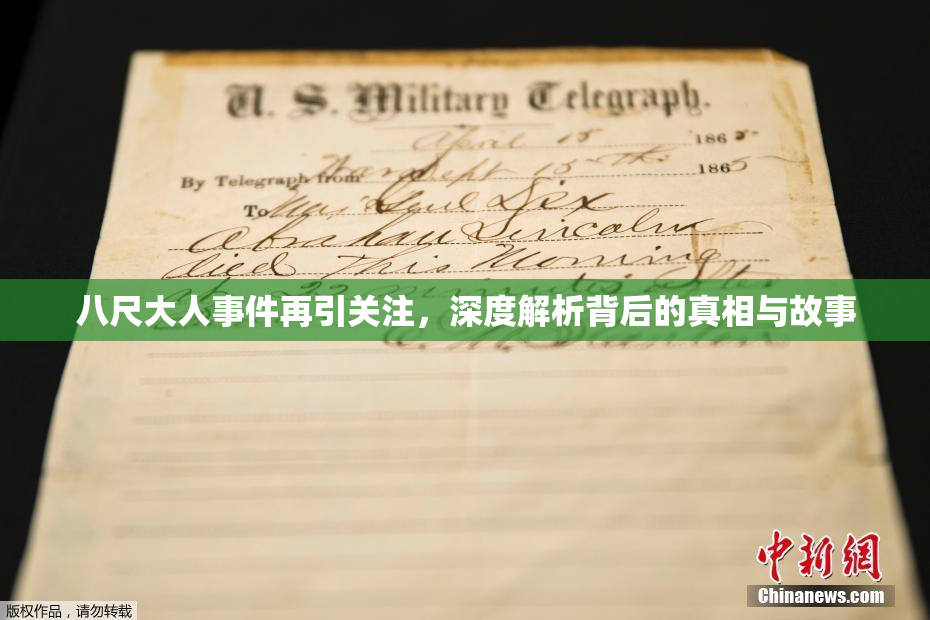 U. S. Military Telegraph.
April 15 1865
By Telegraph from War Dept 15th 1865
To Maj Genl Dix
Abraham Lincoln
died This Morning
22 minutes after
八尺大人事件再引关注，深度解析背后的真相与故事
中新网
Chinanews.com
版权作品，请勿转载